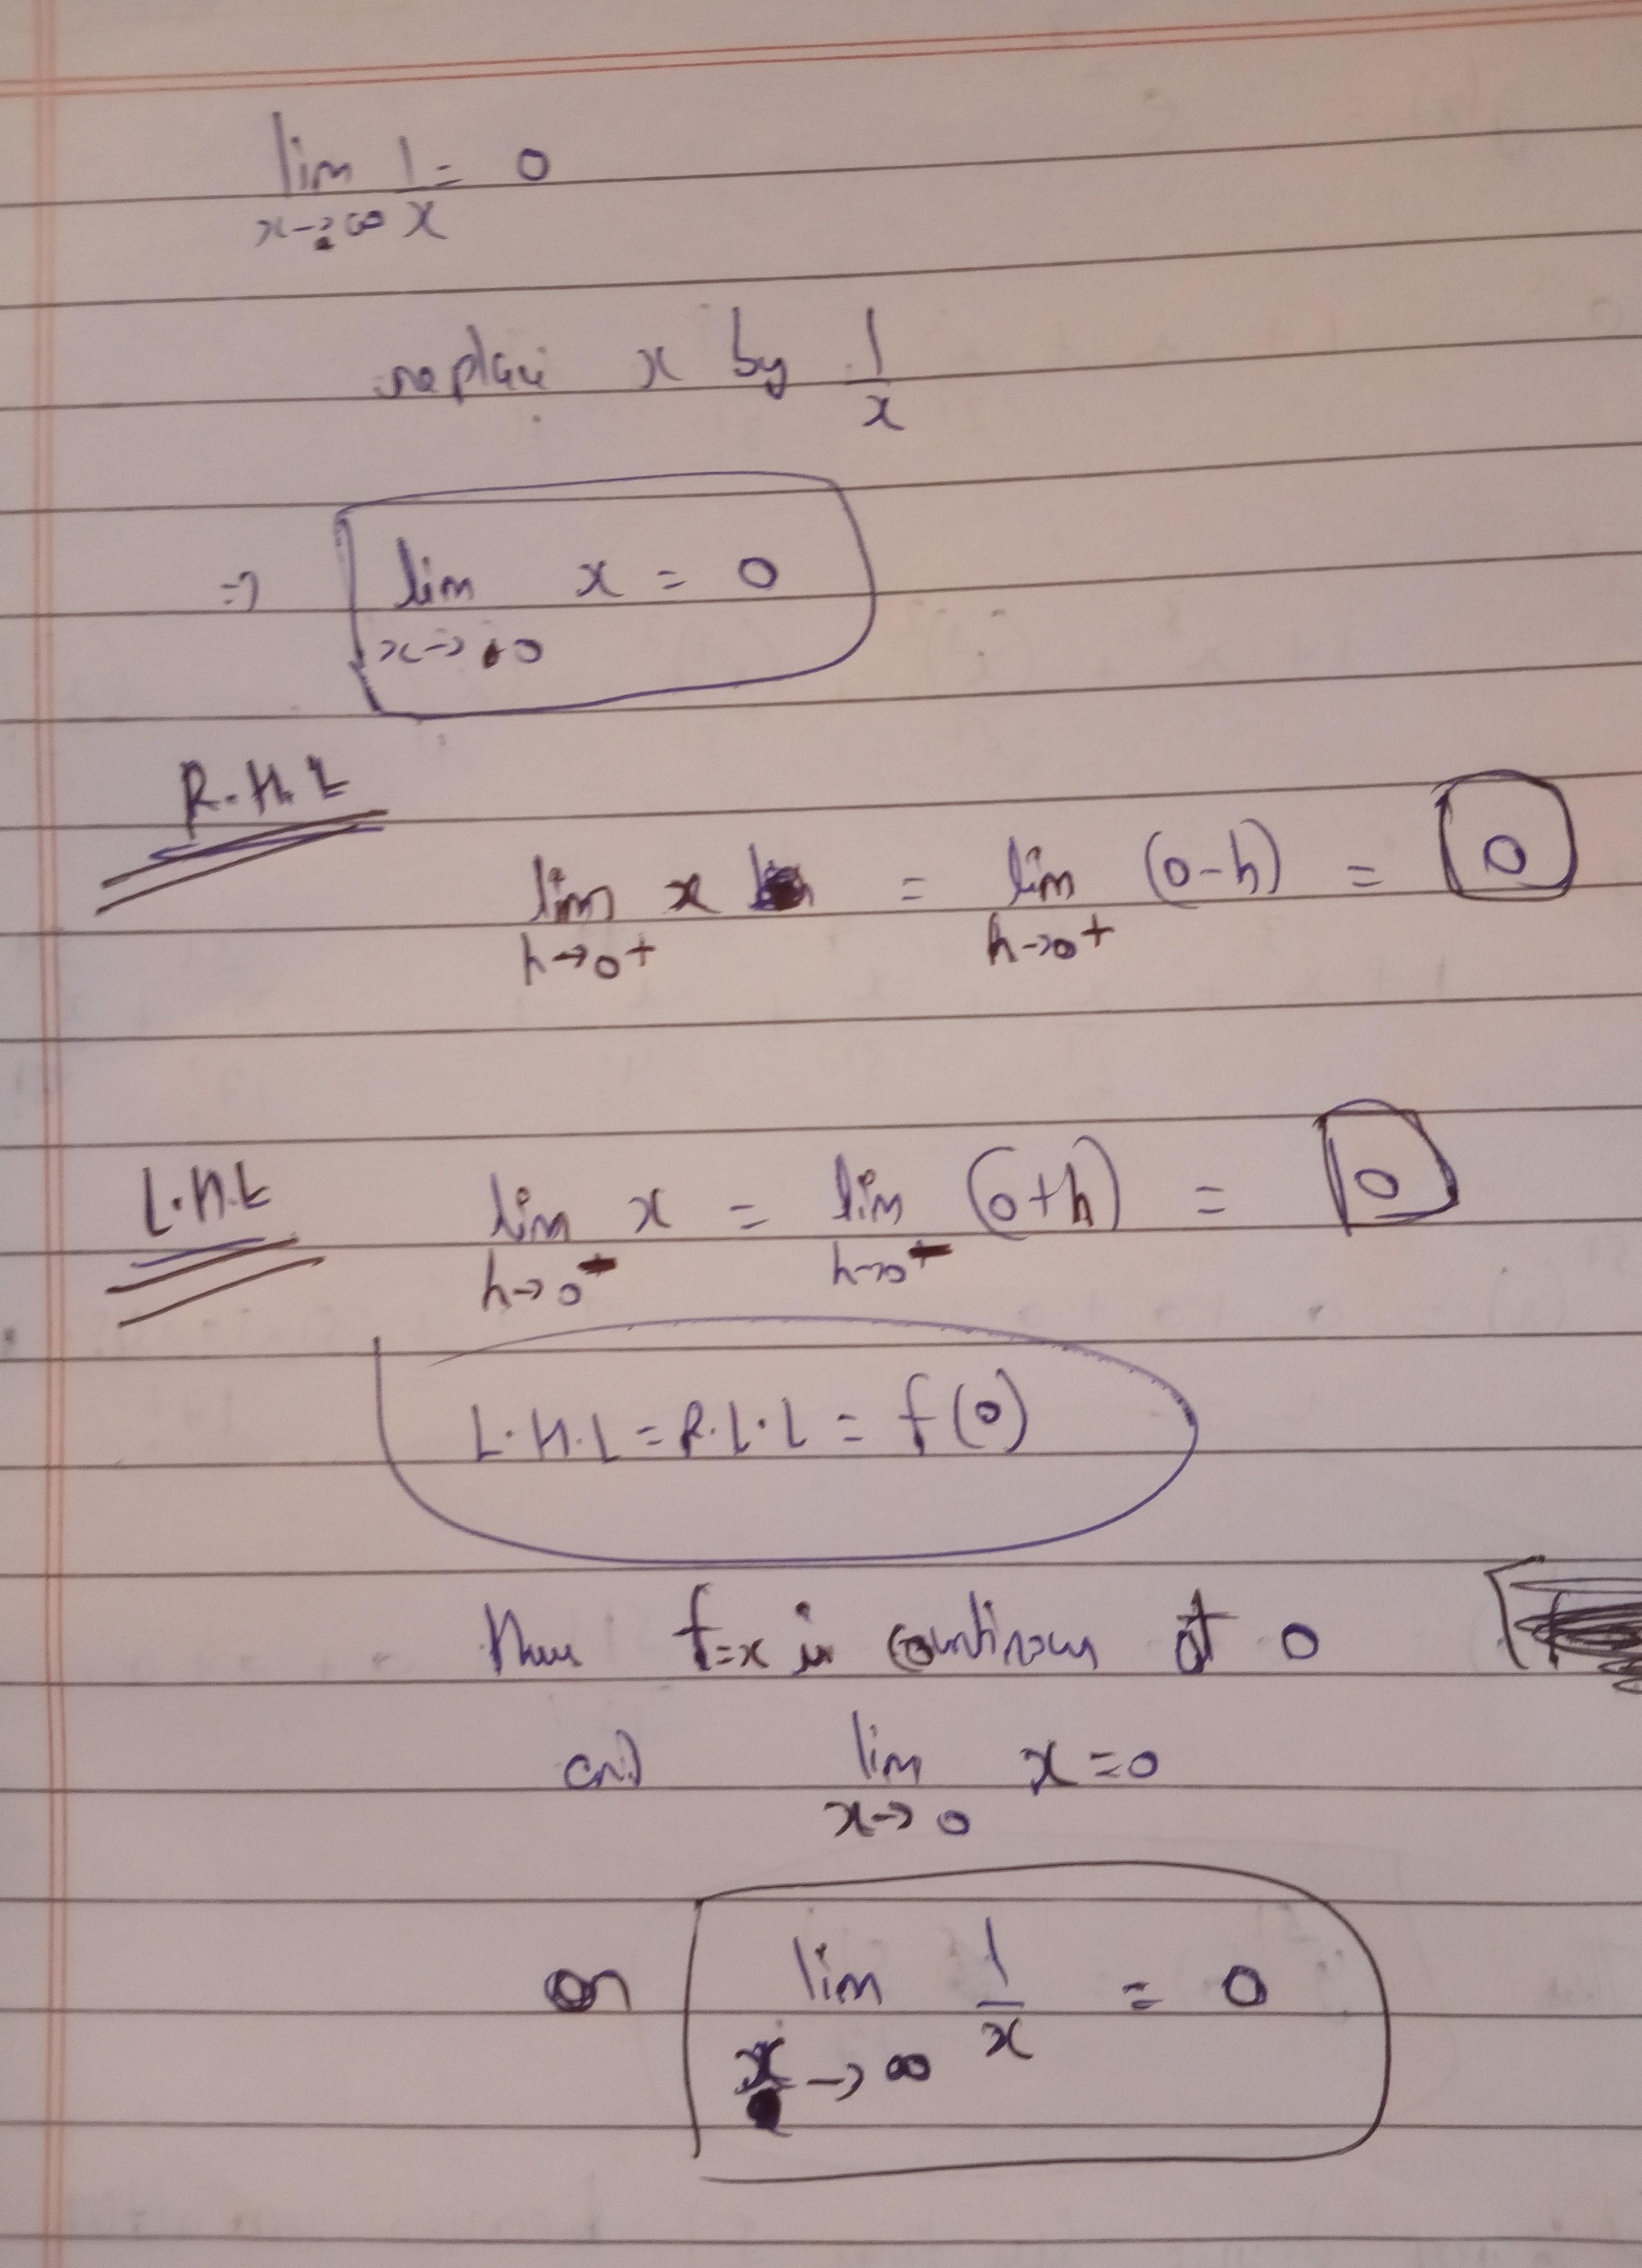 lim 1/x = 0
x→∞
replace x by 1/x
⇒ lim x = 0
x→0
R.H.L
lim x = lim (0-h) = 0
h→0+ h→0+
L.H.L lim x = lim (0+h) = 0
h→0- h→0-
L.H.L = R.L.L = f(0)
thus f=x is continous at 0
and lim x = 0
x→0
or lim 1/x = 0
x→∞